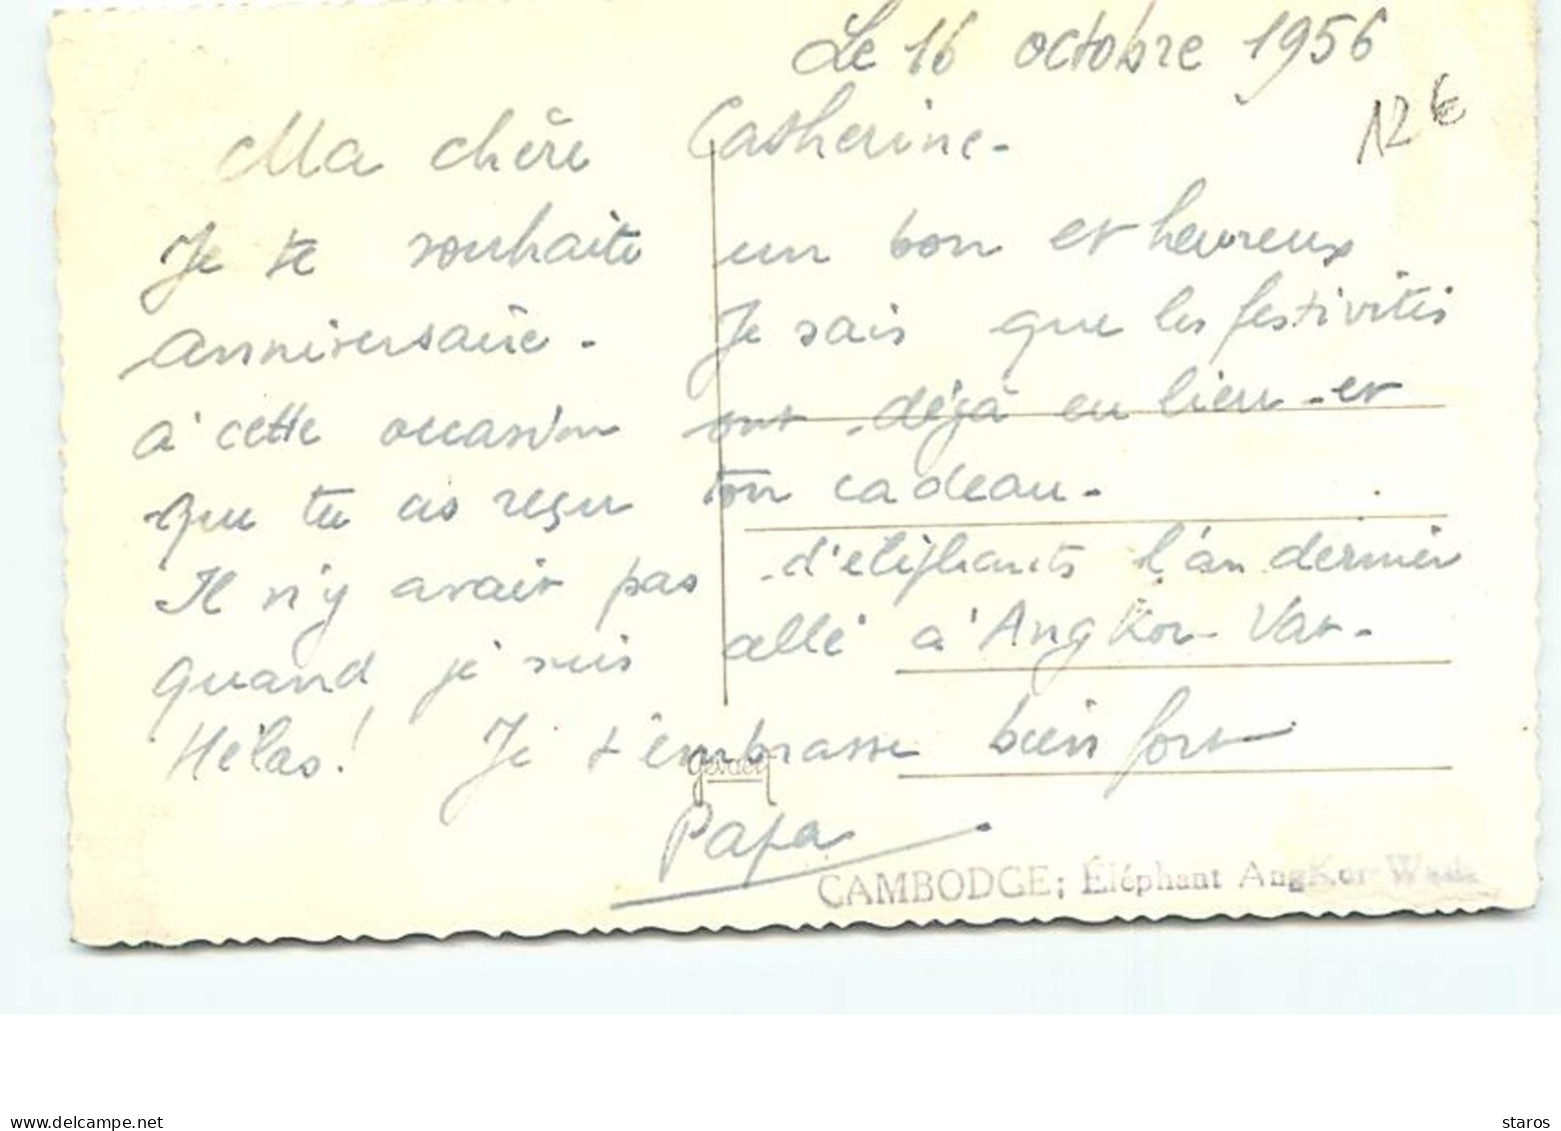 Le 16 octobre 1956
12€
Ma chère Catherine-
Je te souhaite un bon et heureux
anniversaire. Je sais que les festivités
à cette occasion ont déjà eu lieu - et
que tu as reçu ton cadeau-
Il n'y avait pas d'éléphants l'an dernier
quand je suis allé à Angkor-Vat-
Hélas! Je t'embrasse bien fort
Gevaert
Papa
CAMBODGE; Éléphant AngKor
www.delcampe.net
staros